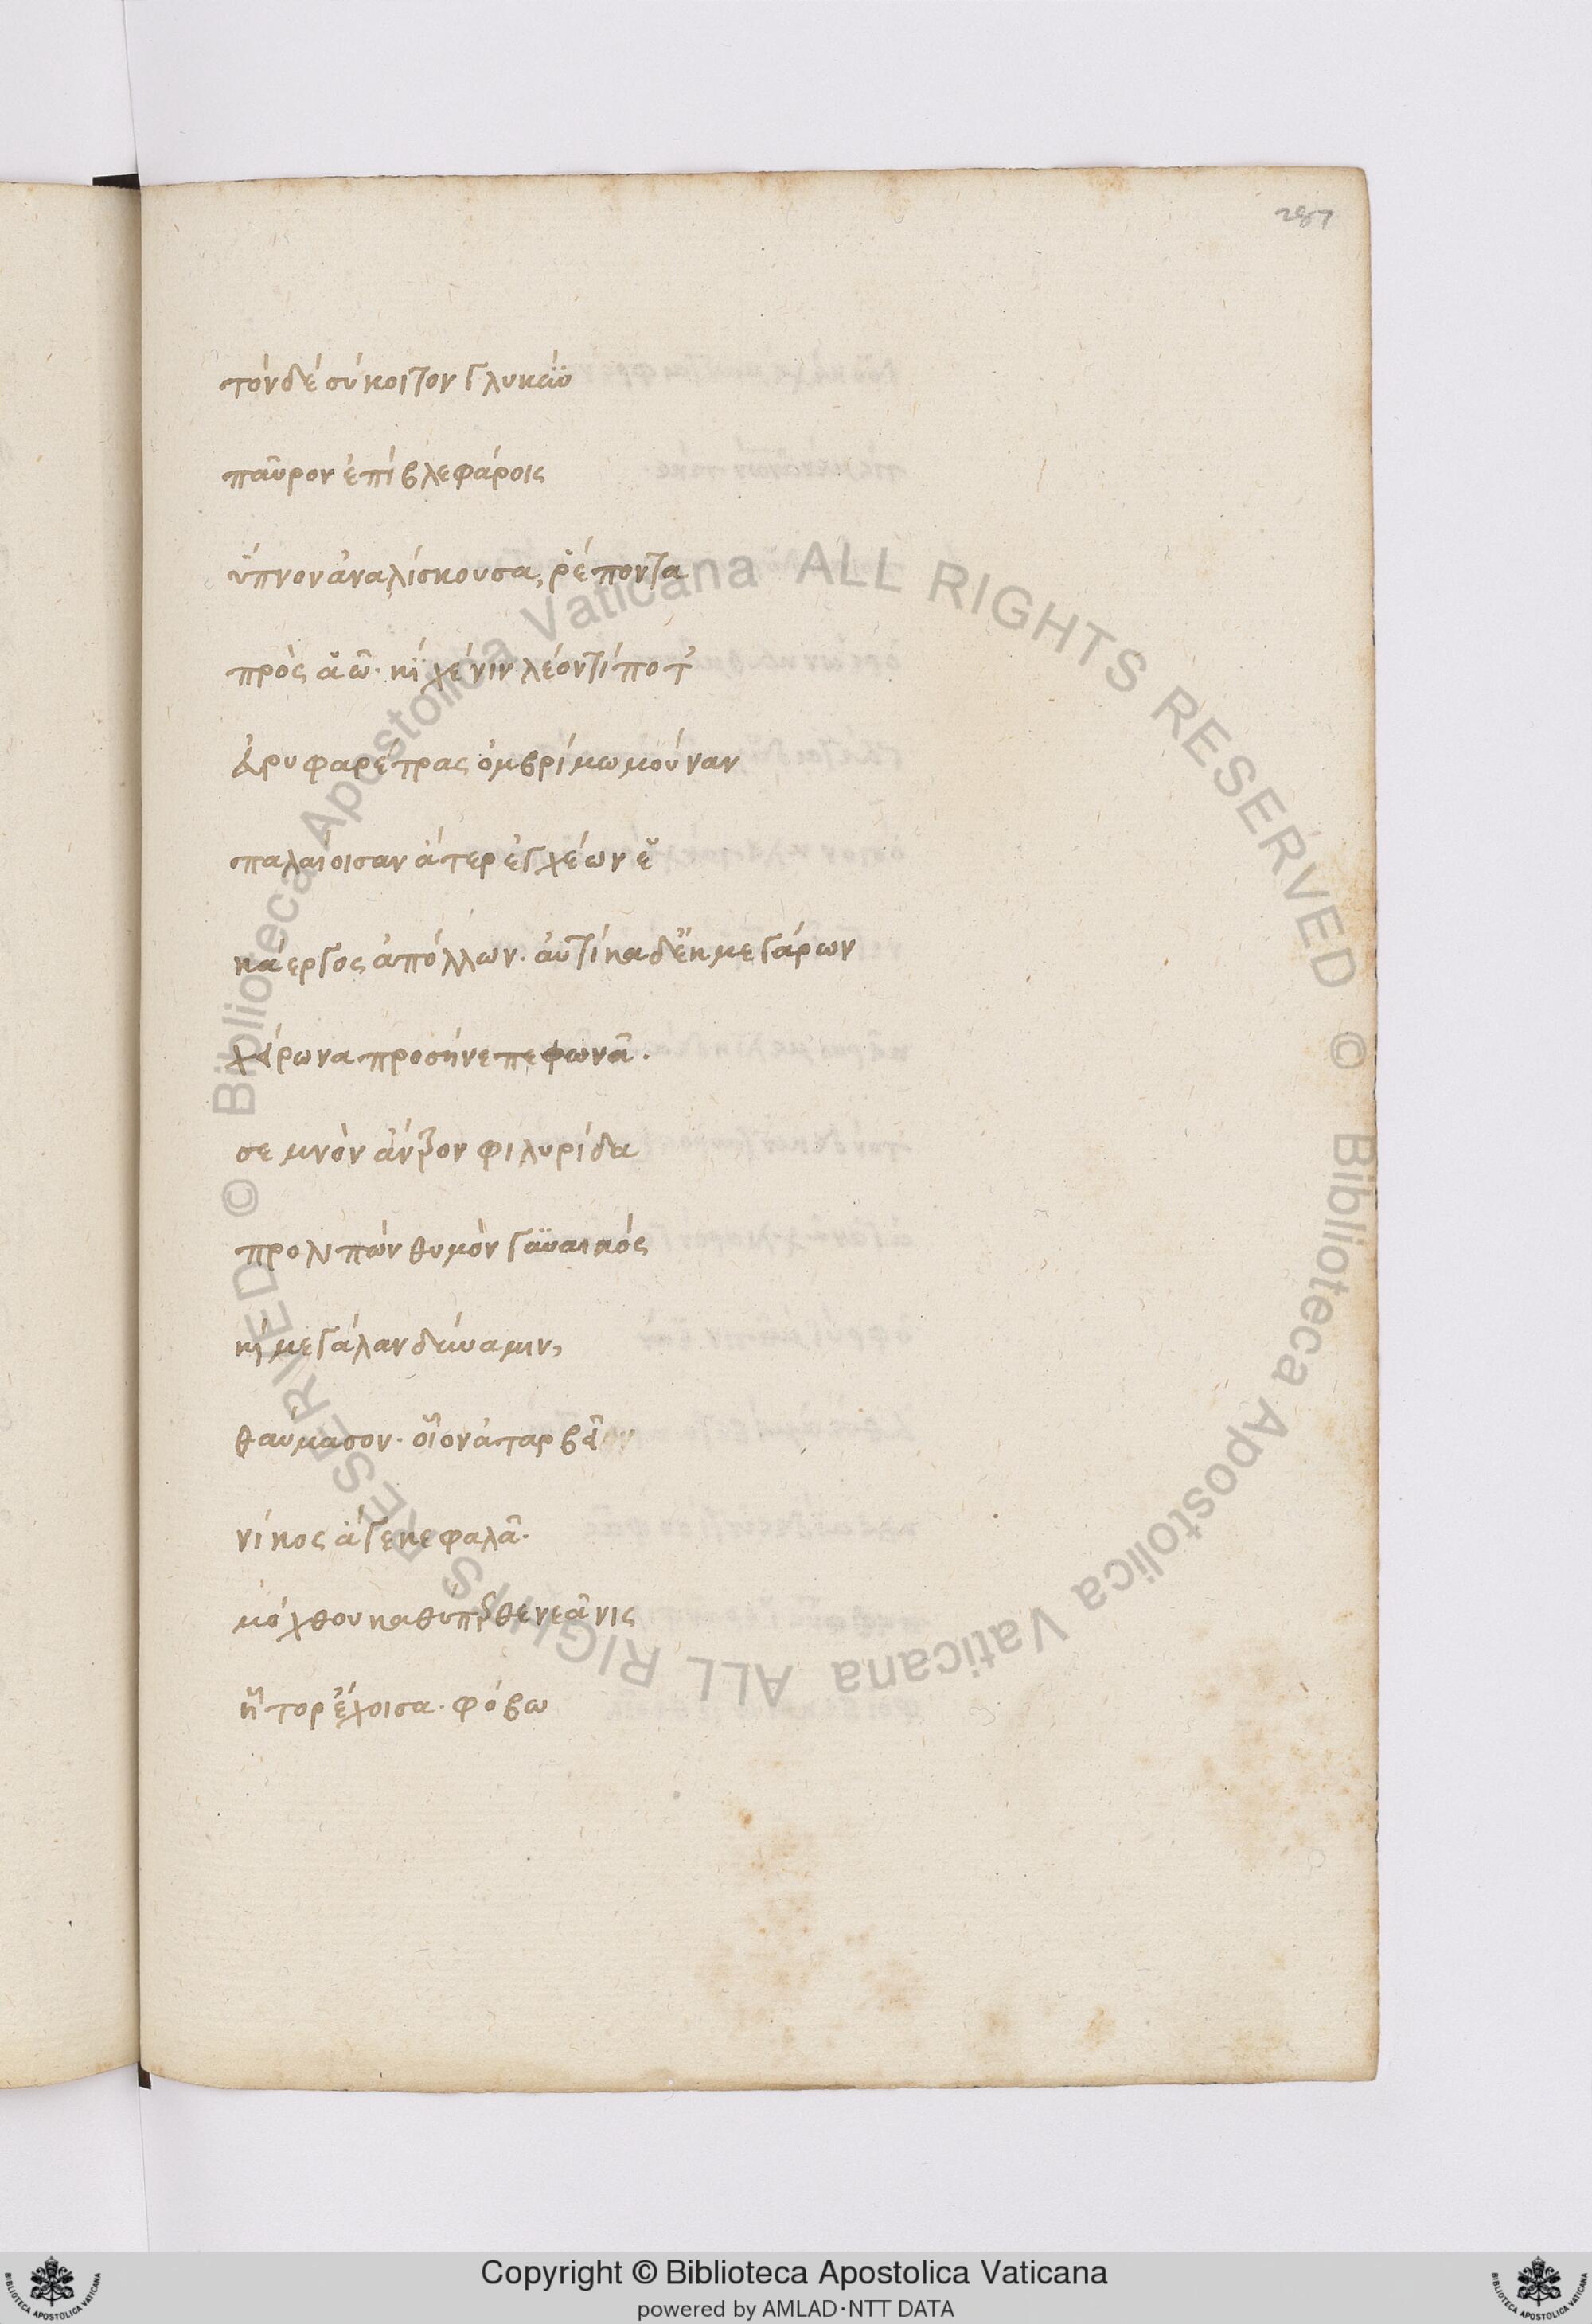 287
τὸν δέ σύκοιτον γλυκὺν
παῦρον ἐπὶ βλεφάροις
ὕπνον ἀναλίσκουσα, ῥέποντα
πρὸς ἀῶ· κίχε νιν λέοντί ποτ'
εὐρυφαρέτρας ὀμβρίμω μούναν
παλαίοισαν ἄτερ ἐγχέων ἑ
κάεργος ἀπόλλων· αὐτίκα δ' ἐκ μεγάρων
χάρωνα προσήνεπε φωνᾶ·
σεμνὸν ἄντρον φιλυρίδα
προλιπὼν θυμὸν γυναικός
καὶ μεγάλαν δύναμιν,
θαύμασον· οἷον ἀταρβεῖ
νίκος ἄγει κεφαλᾶ·
μόχθου καθύπερθε νεᾶνις
ἦτορ ἔχοισα· φόβω
© Biblioteca Apostolica Vaticana ALL RIGHTS RESERVED © Biblioteca Apostolica Vaticana ALL RIGHTS RESERVED
Copyright © Biblioteca Apostolica Vaticana
powered by AMLAD·NTT DATA
BIBLIOTECA APOSTOLICA VATICANA
BIBLIOTECA APOSTOLICA VATICANA